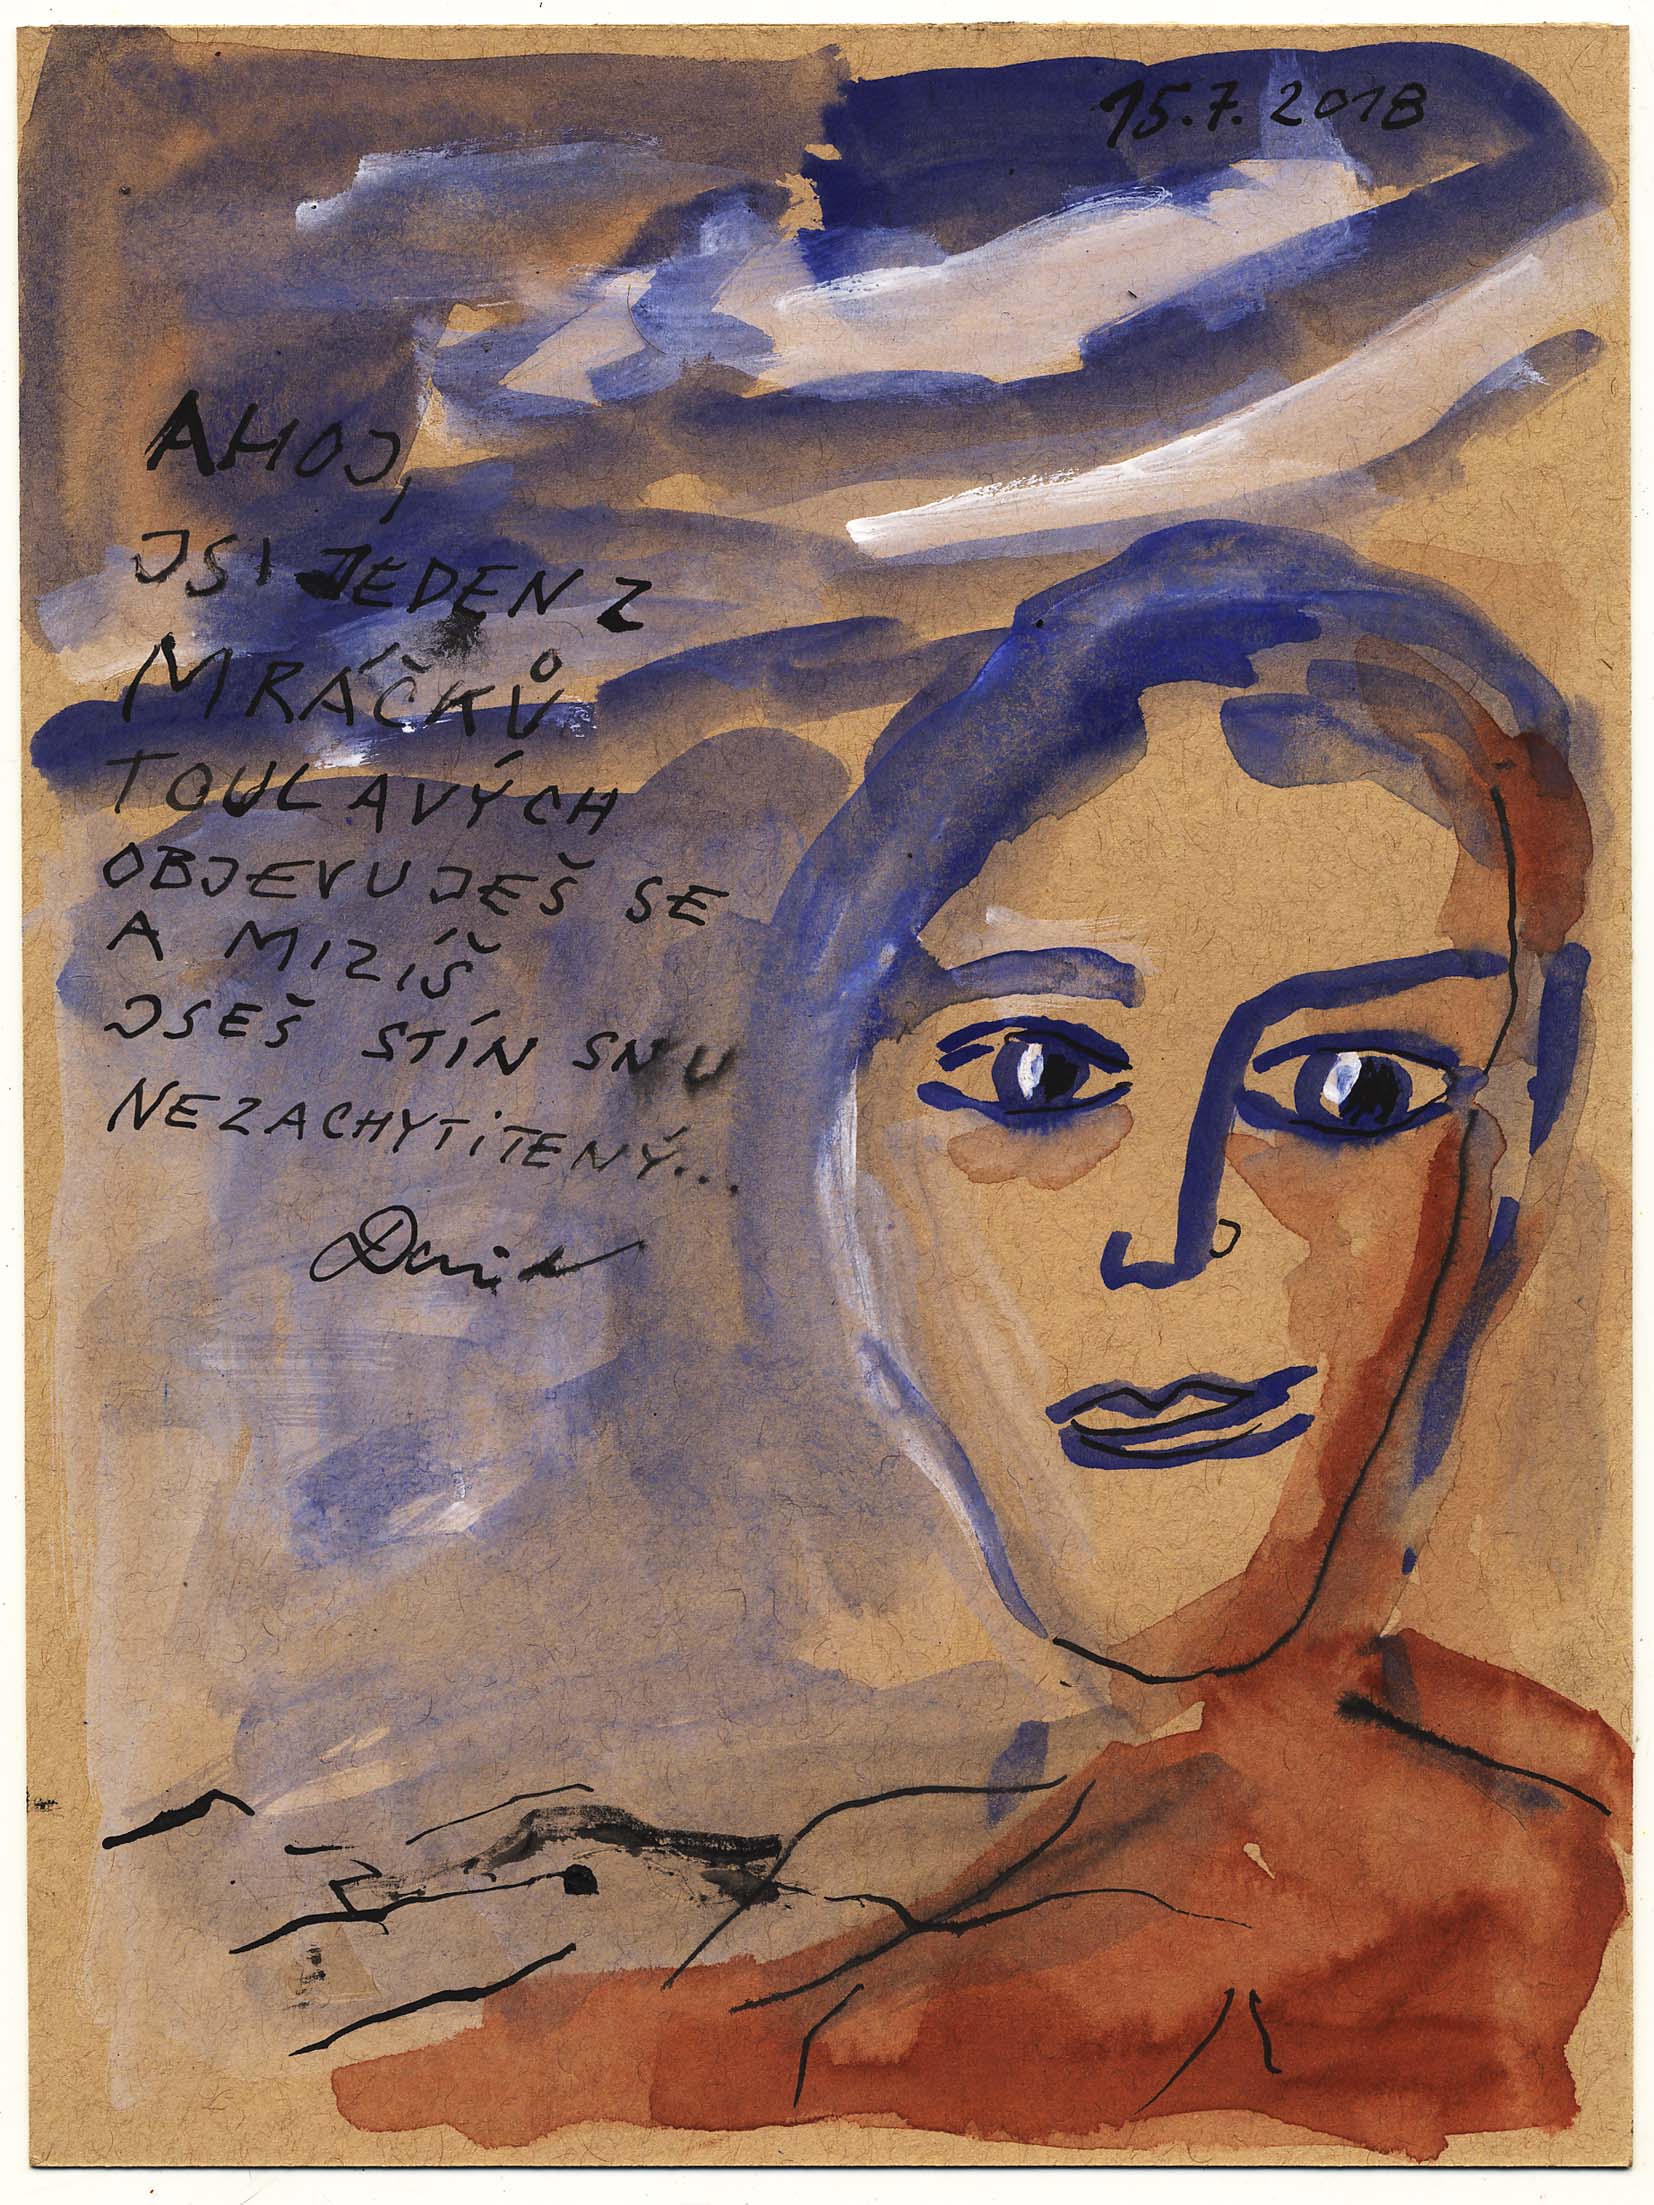 15.7.2018
AHOJ,
JSI JEDEN Z
MRÁČKŮ
TOULAVÝCH
OBJEVUJEŠ SE
A MIZÍŠ
JSEŠ STÍN SNU
NEZACHYTITENÝ...
David